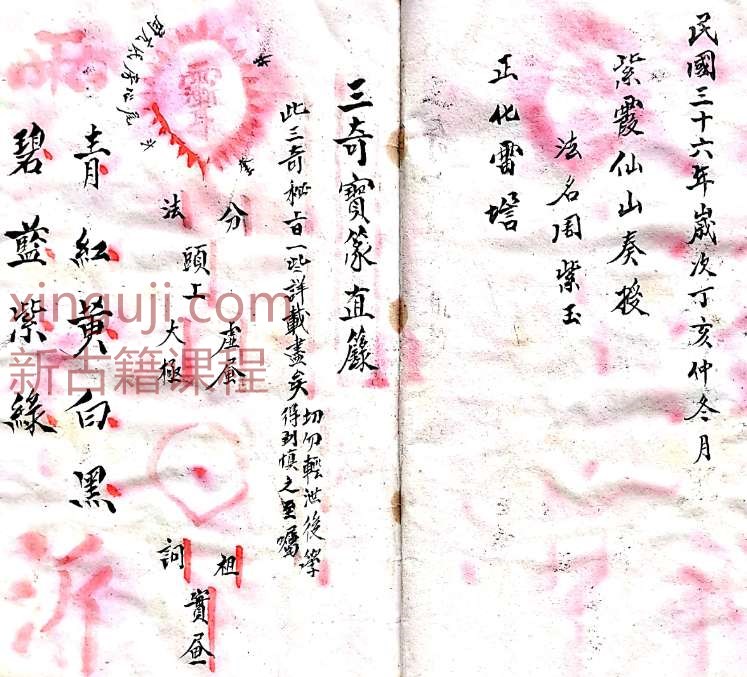 民國三十六年歲次丁亥仲冬月
紫霞仙山奏授
法名周紫玉
正化雷壇
三奇寶篆直籙
此三奇秘旨一些詳載盡矣
切勿輕泄後學
得到慎之至囑
分 虛
祖 實
法頭上太極
詞
青紅黃白黑
碧藍紫綠
xinguji.com
新古籍课程